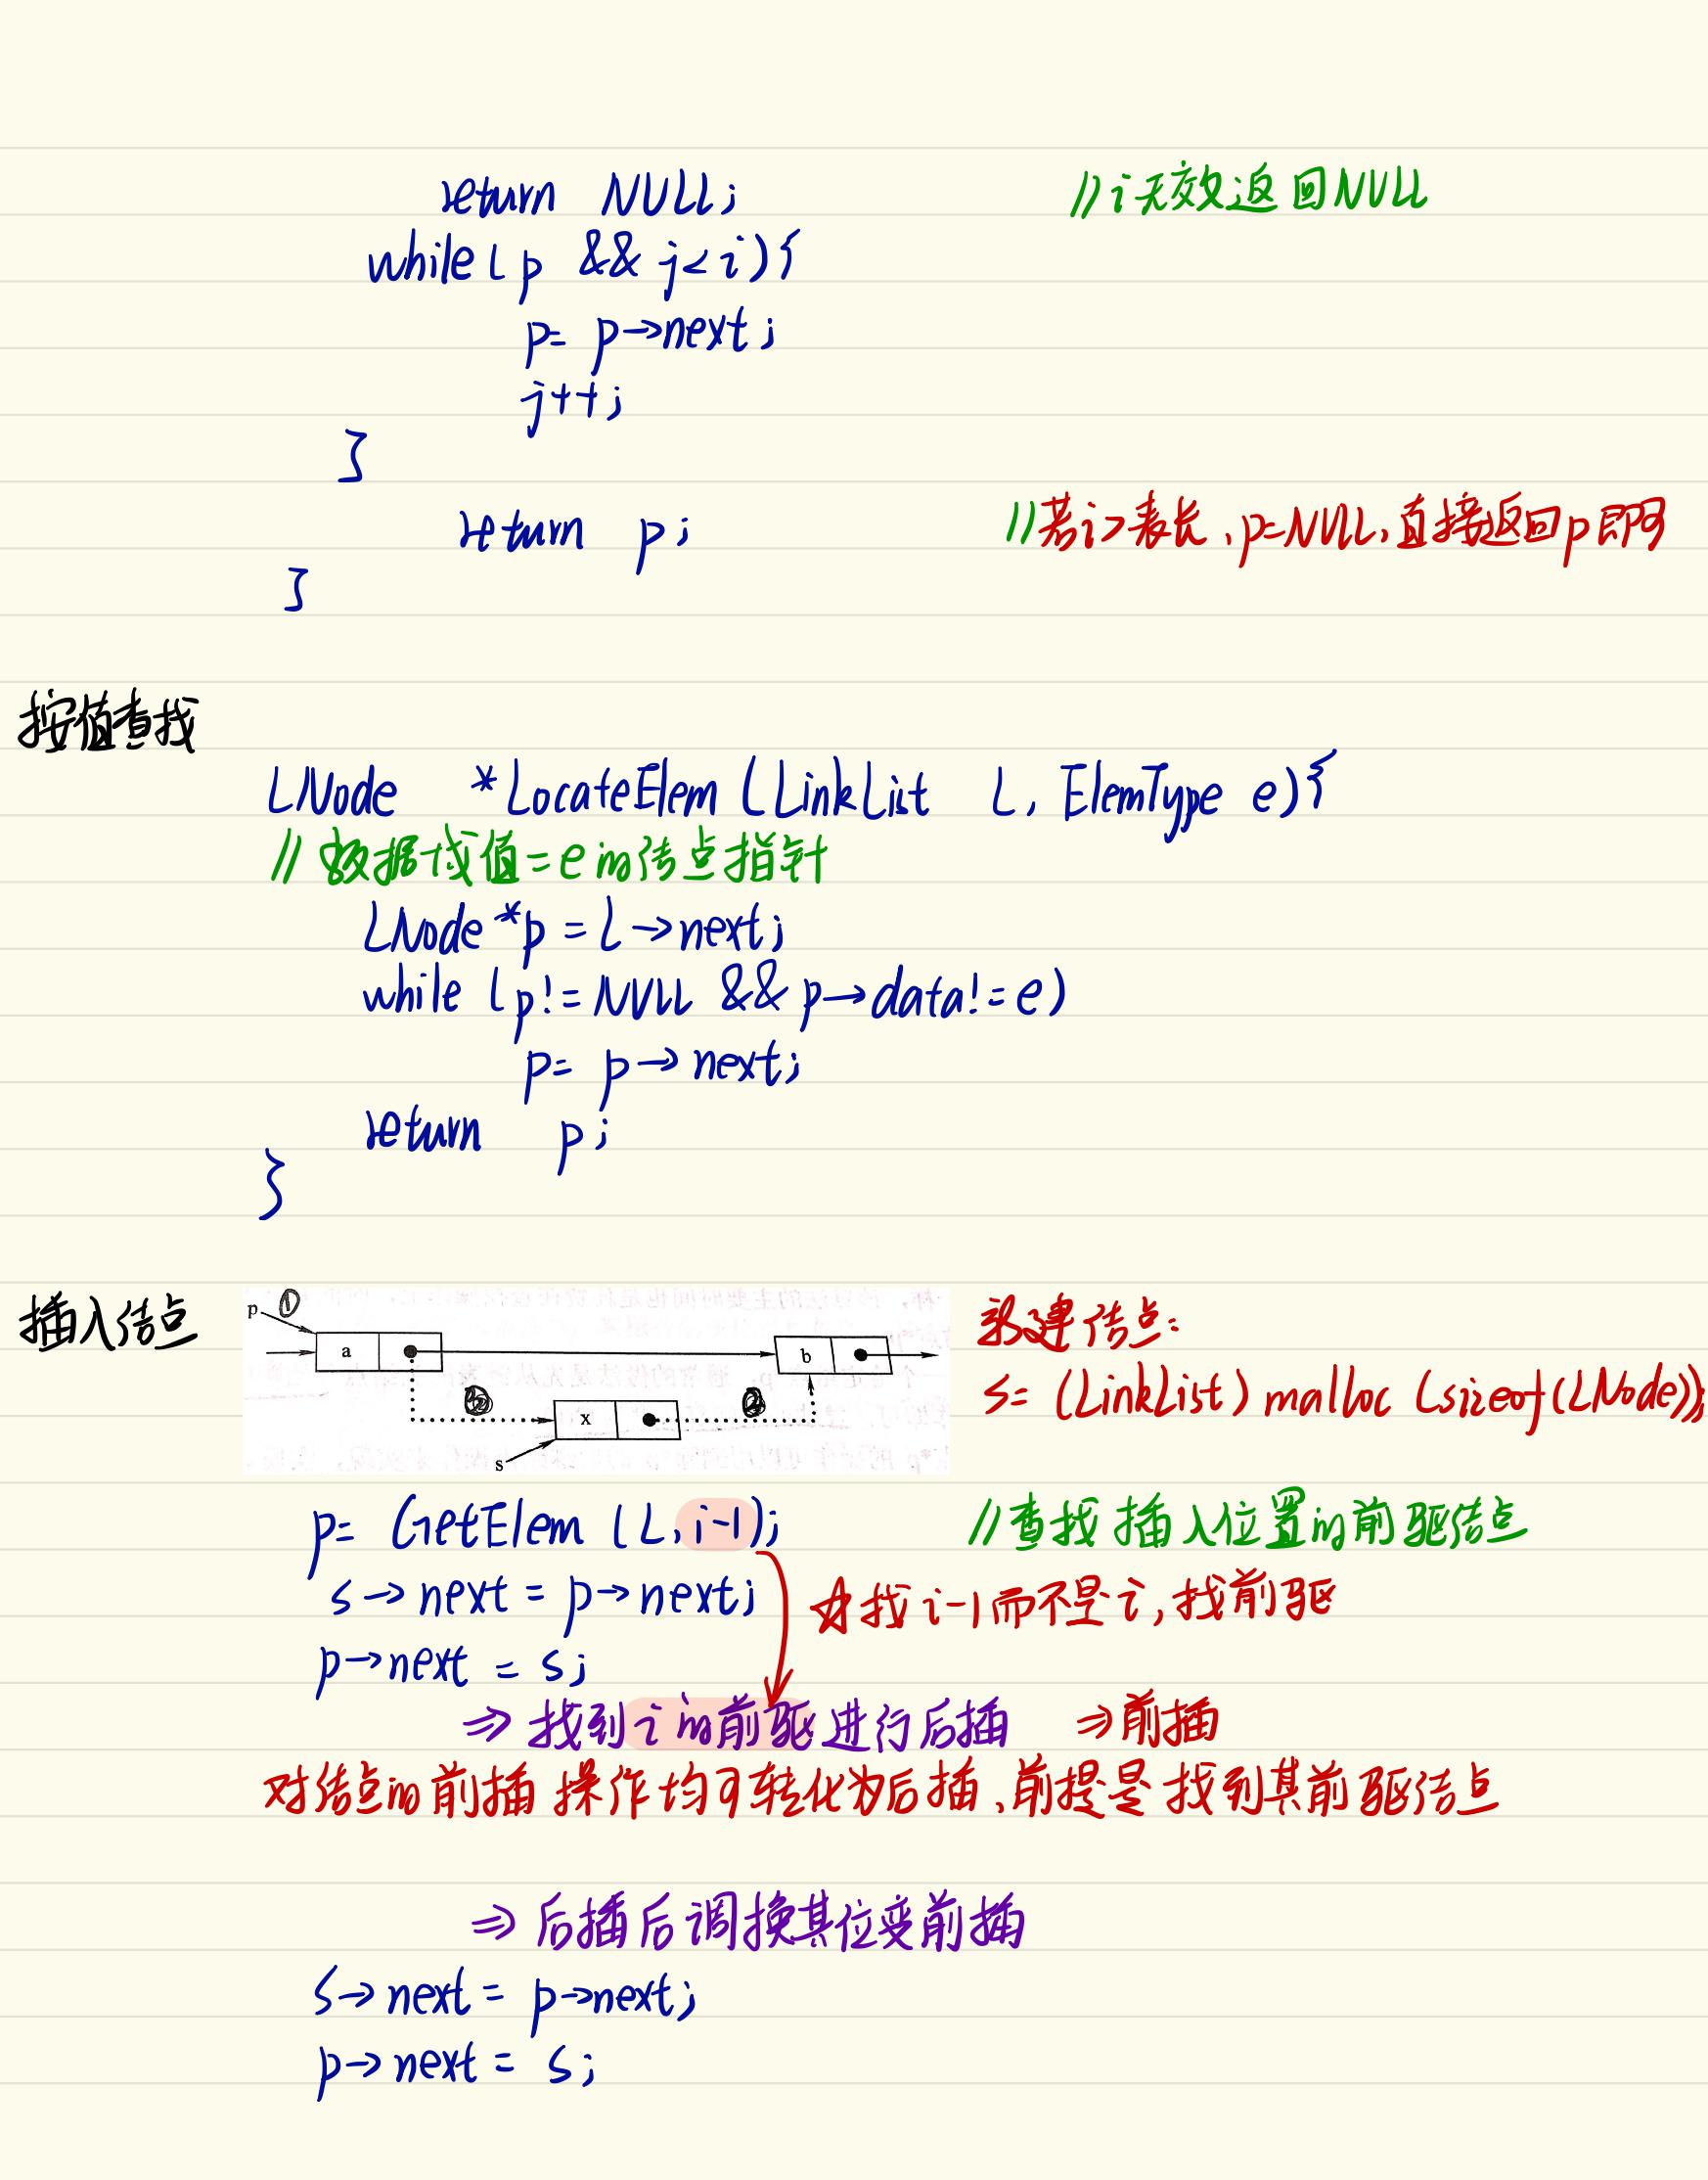 return NULL; //i无效返回NULL
while(p && j<i){
p= p→next;
j++;
}
return p; //若i>表长,p=NULL,直接返回p即可
}
按值查找
LNode *LocateElem(LinkList L, ElemType e){
//数据域值=e的结点指针
LNode *p =L→next;
while (p!=NULL && p→data!=e)
p= p→next;
return p;
}
插入结点
p ①
a b
② x
s
新建结点:
s= (LinkList) malloc (sizeof(LNode));
p= GetElem (L,i-1); //查找插入位置的前驱结点
s→next = p→next; 找i-1而不是i,找前驱
p→next = s;
⇒找到i的前驱进行后插 ⇒前插
对结点的前插操作均可转化为后插,前提是找到其前驱结点
⇒后插后调换其位变前插
s→next = p→next;
p→next = s;